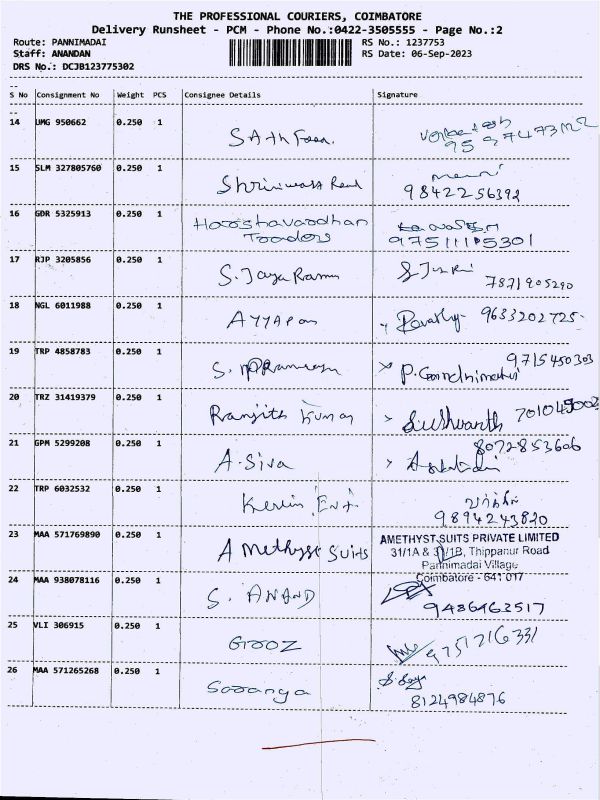 THE PROFESSIONAL COURIERS, COIMBATORE
Delivery Runsheet - PCM - Phone No.:0422-3505555 - Page No.:2
Route: PANNIMADAI
RS No.: 1237753
Staff: ANANDAN
RS Date: 06-Sep-2023
DRS No.: DCJB123775302
S No Consignment No Weight PCS Consignee Details Signature
14 UMG 950662 0.250 1
15 SLM 327805760 0.250 1
9842256392
16 GDR 5325913 0.250 1 Harshavardhan
Traders
17 RJP 3205856 0.250 1 S. Jaya Raman
7871905290
18 NGL 6011988 0.250 1 Ayyapan 9633202725
19 TRP 4858783 0.250 1 S.
9715450303
20 TRZ 31419379 0.250 1 Ranjith Kumar
21 GPM 5299208 0.250 1 A. Siva
8072853606
22 TRP 6032532 0.250 1
9894243820
23 MAA 571769890 0.250 1 Amethyst Suits
AMETHYST SUITS PRIVATE LIMITED
31/1A & 31/1B, Thippanur Road
Pannimadai Village
Coimbatore - 641 017
24 MAA 938078116 0.250 1 S. ANAND
9486463517
25 VLI 306915 0.250 1 Grooz
9751216331
26 MAA 571265268 0.250 1 Saranga
8124984876